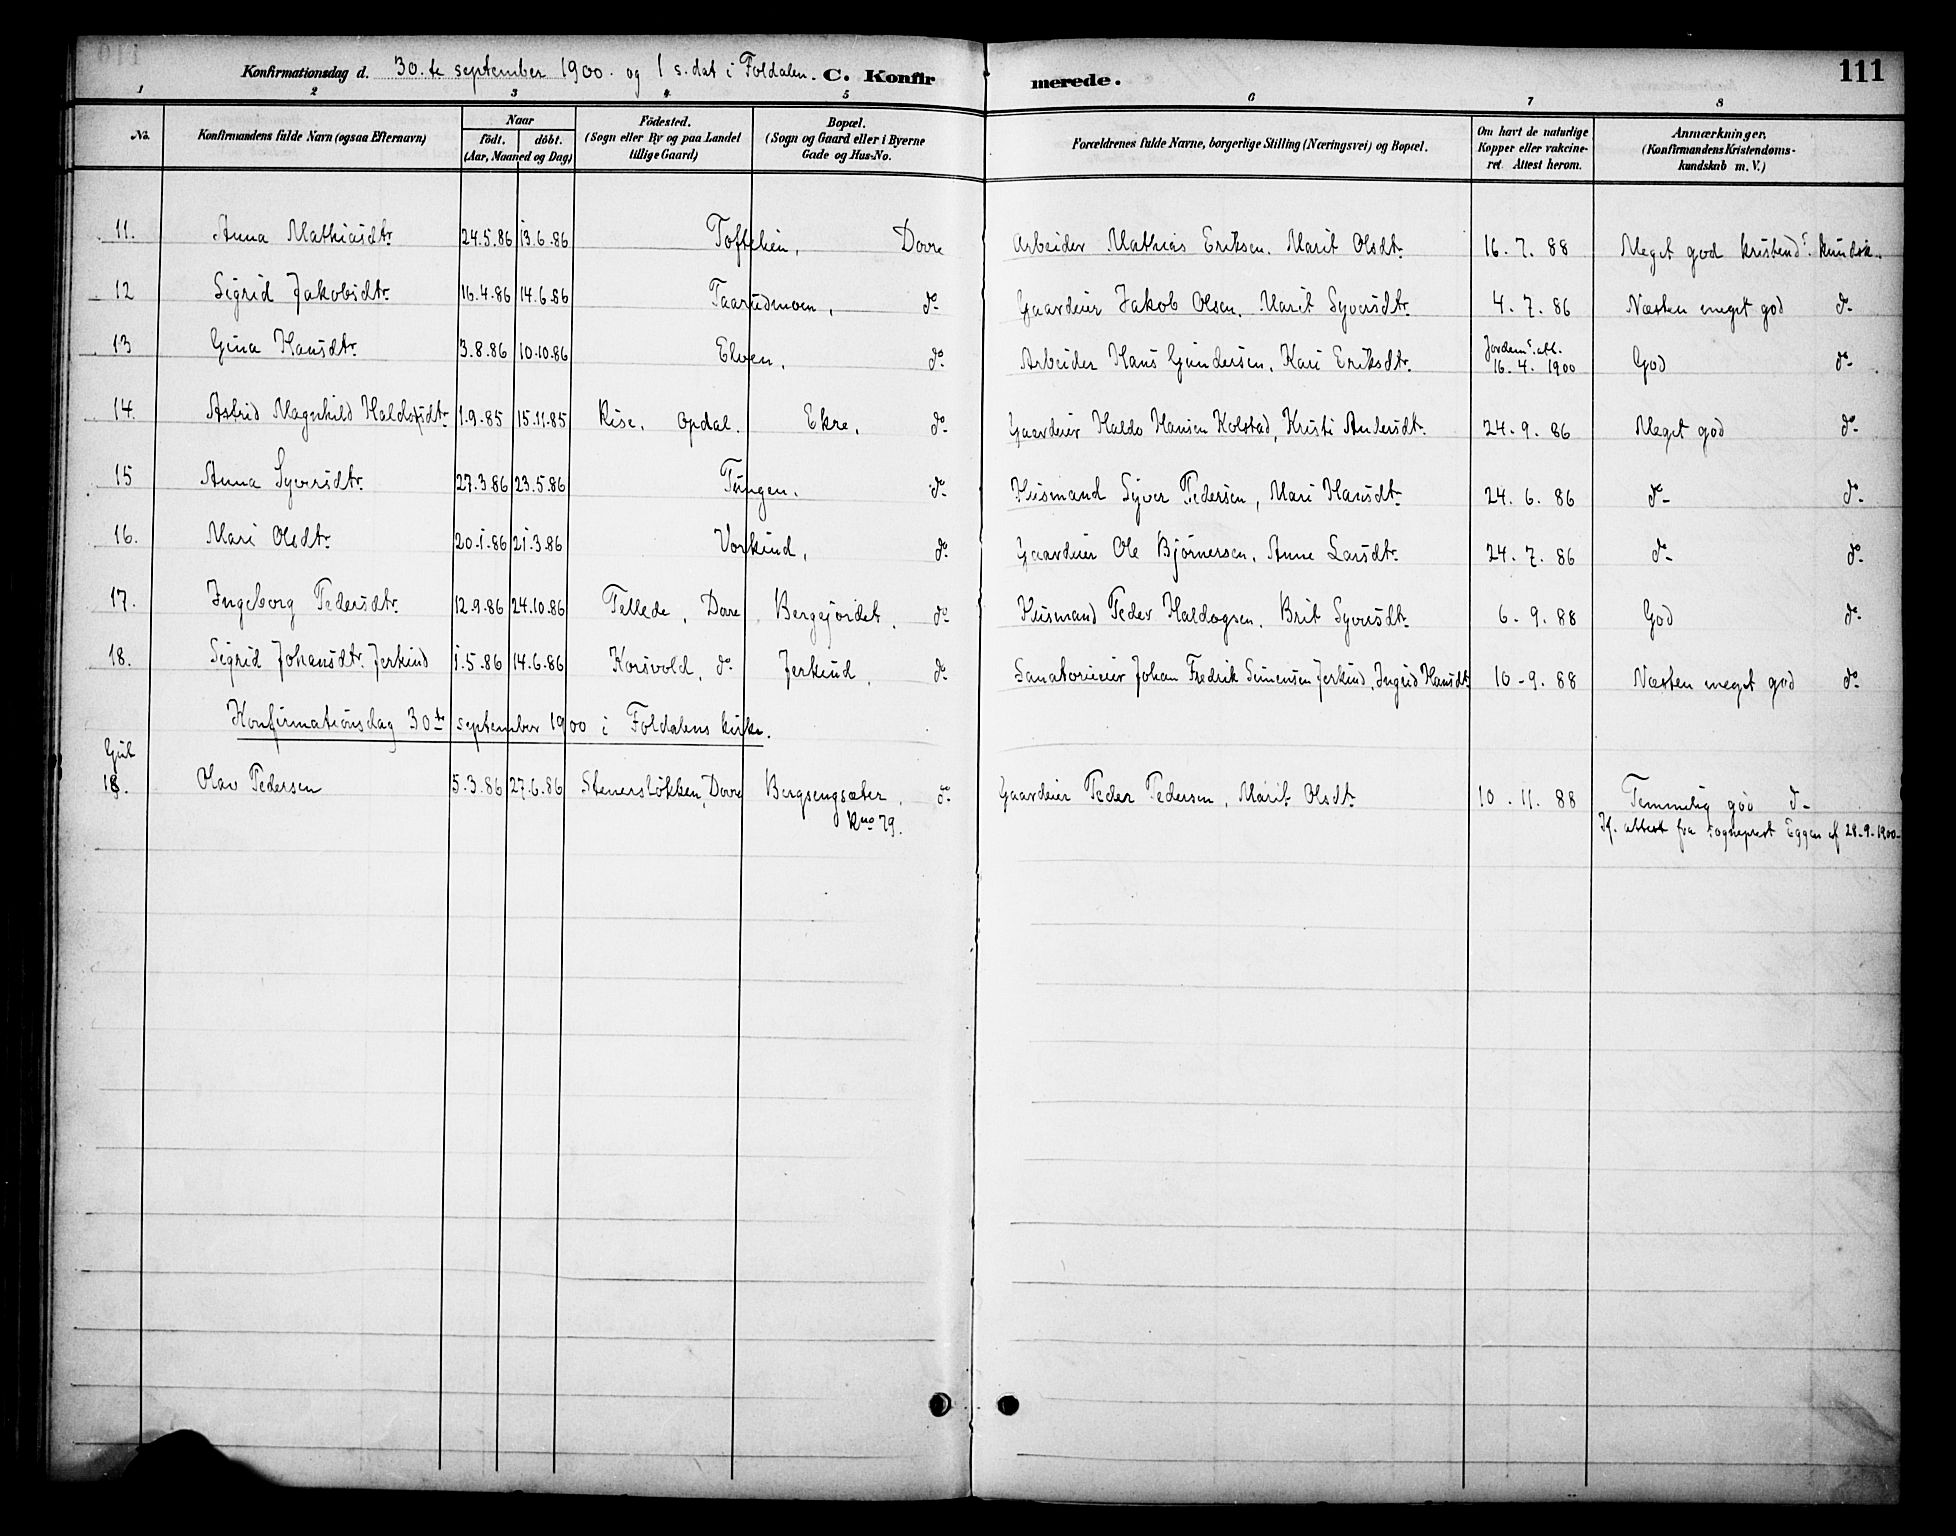 Konfirmationsdag d. 30.te september 1900. og 1 s. dat i Foldalen. C. Konfirmerede. 111
1 2 3 4 5 6 7 8
No. Konfirmandens fulde Navn (ogsaa Efternavn) Naar Födt. döbt. (Aar, Maaned og Dag) Födested. (Sogn eller By og paa Landet tillige Gaard) Bopæl. (Sogn og Gaard eller i Byerne Gade og Hus-No. Forældrenes fulde Navne, borgerlige Stilling (Næringsvei) og Bopæl. Om havt de naturlige Kopper eller vakcineret. Attest herom. Anmærkninger. (Konfirmandens Kristendomskundskab m. V.)
11. Anna Mathiasdtr. 24.5.86 13.6.86 Tofteien, Dovre Arbeider Mathias Eriksen. Marit Olsdtr. 16. 7. 88 Meget god kristend.s kundsk.
12 Sigrid Jakobsdtr. 16.4.86 14.6.86 Taarudmoen, do. Gaardeier Jakob Olsen, Marit Syversdtr. 4. 7. 86 Næsten meget god do.
13 Gina Hansdtr. 3.8.86 10.10.86 Elven, do. Arbeider Hans Gundersen, Kari Eriksdtr. Jordem.s att. 16. 4. 1900 God do.
14. Astrid Magnhild Haldosdtr. 1.9.85 15.11.85 Rise, Opdal. Ekre, do. Gaardeier Haldo Hansen Kolstad, Kristi Andersdtr. 24. 9. 86 Meget god do.
15 Anna Syversdtr. 27.3.86 23.5.86 Tungen, do. Husmand Syver Pedersen, Mari Hansdtr. 24. 6. 86 do. do.
16. Mari Olsdtr. 20.1.86 21.3.86 Vorkind, do. Gaardeier Ole Bjørnersen, Anne Larsdtr. 24. 7. 86 do. do.
17. Ingeborg Pedersdtr. 12.9.86 24.10.86 Tellede, Dovre Bergejordet, do. Husmand Peder Haldogsen, Brit Syversdtr. 6. 9. 88 God do.
18. Sigrid Johansdtr. Jerkind 1.5.86 14.6.86 Korsvold, do. Jerkind, do. Sanatorieeier Johan Fredrik Simensen Jerkind, Ingrid Hansdtr. 10-9. 88 Næsten meget god do.
Konfirmationsdag 30te september 1900 i Foldalens kirke.
Gut
Olav Pedersen 5.3.86 27.6.86 Stenersløkken, Dovre Bergsengsæter, do. Gaardeier Peder Pedersen, Marit Olsdtr. 10. 11. 88 Temmelig god do.
79. Jf. attest fra sogneprest Eggen af 28-9-1900.